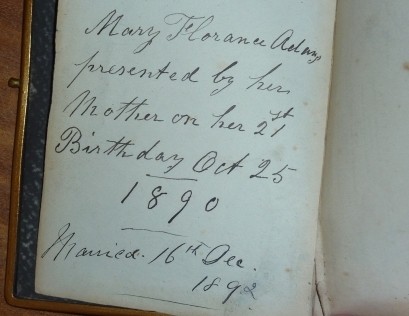 Mary Florance Adams
presented by her
Mother on her 21st
Birthday Oct 25
1890
Married. 16th Dec.
1892